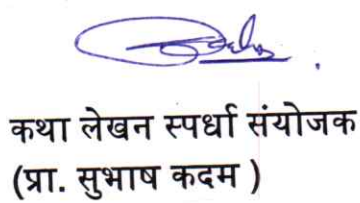 कथा लेखन स्पर्धा संयोजक
(प्रा. सुभाष कदम )